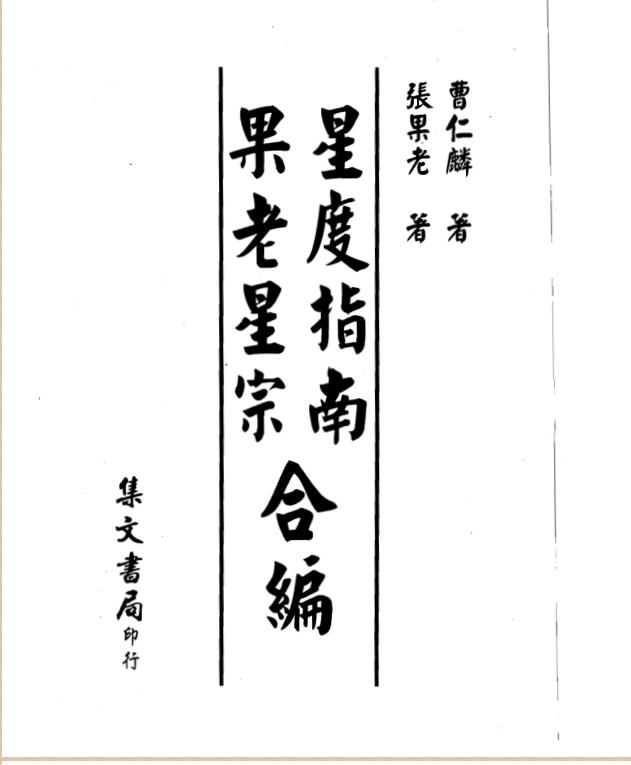 曹仁麟 著
張果老 著
星度指南
果老星宗
合編
集文書局印行